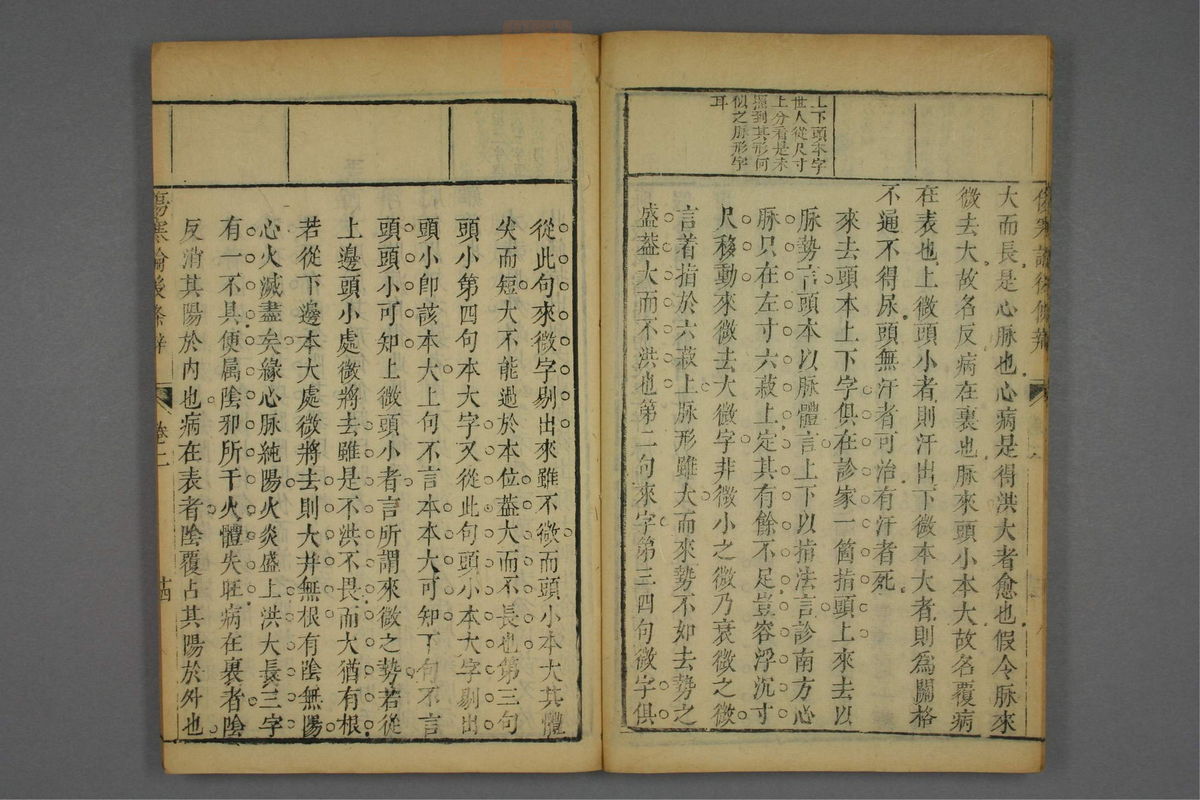 上下頭本字
世人從尺寸
上分看是未
摸到其形何
似之脉形字
耳
大而長是心脉也心病是得洪大者愈也假令脉來
微去大故名反病在裏也脉來頭小本大故名覆病
在表也上微頭小者則汗出下微本大者則為關格
不通不得尿頭無汗者可治有汗者死
來去頭本上下字俱在診家一箇指頭上來去以
脉勢言頭本以脉體言上下以指法言診南方心
脉只在左寸六菽上定其有餘不足豈容浮沉寸
尺移動來微去大微字非微小之微乃衰微之微
言着指於六菽上脉形雖大而來勢不如去勢之
盛葢大而不洪也第二句來字第三四句微字俱
從此句來微字剔出來雖不微而頭小本大其體
尖而短大不能過於本位葢大而不長也第三句
頭小第四句本大字又從此句頭小本大字剔出
頭小卽該本大上句不言本本大可知下句不言
頭頭小可知上微頭小者言所謂來微之勢若從
上邊頭小處微將去雖是不洪不畏而大猶有根
若從下邊本大處微將去則大井無根有陰無陽
心火滅盡矣緣心脉純陽火炎盛上洪大長三字
有一不具便属陰邪所干火體失旺病在裏者陰
反消其陽於内也病在表者陰覆占其陽於外也
傷寒論後條辨
卷二